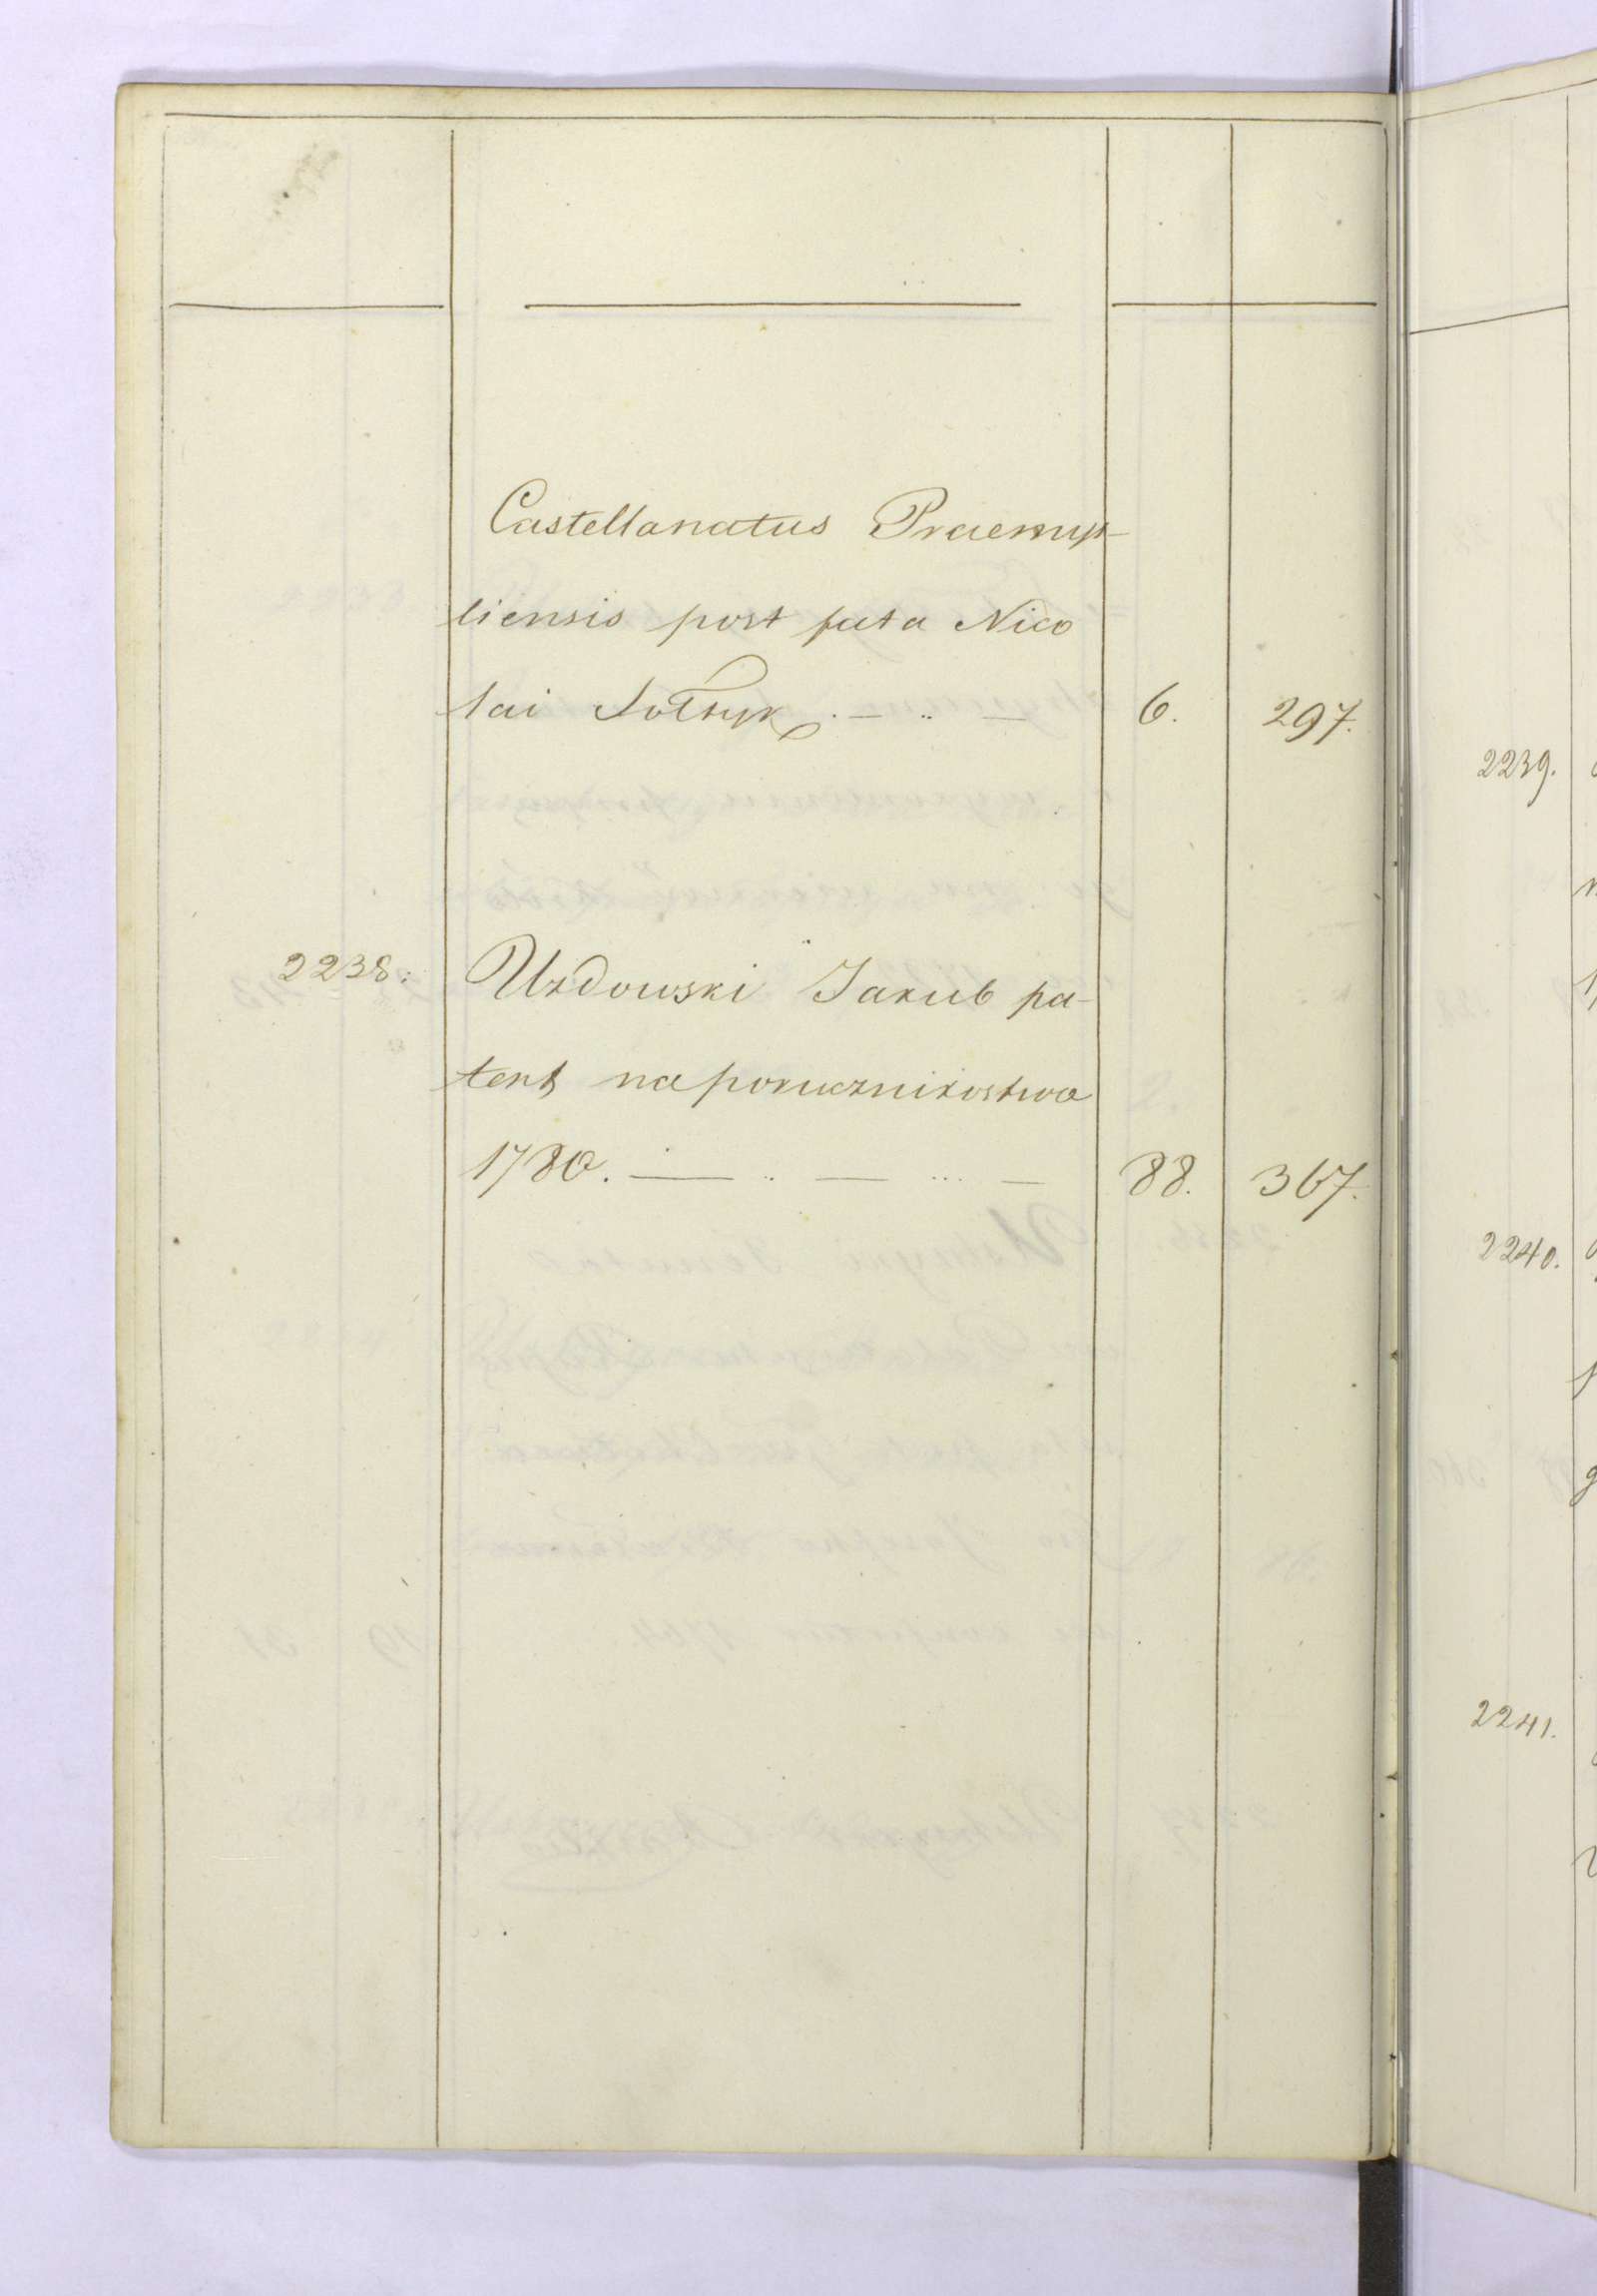 Castellanatus Praemys-
liensis post fata Nico
lai Sołtyk . — .. — 6. 297.
2238. Uzdowski Jakub pa-
tent na porucznikostwo
1780. — .. — ... — 88. 367.
2239.
2240.
2241.